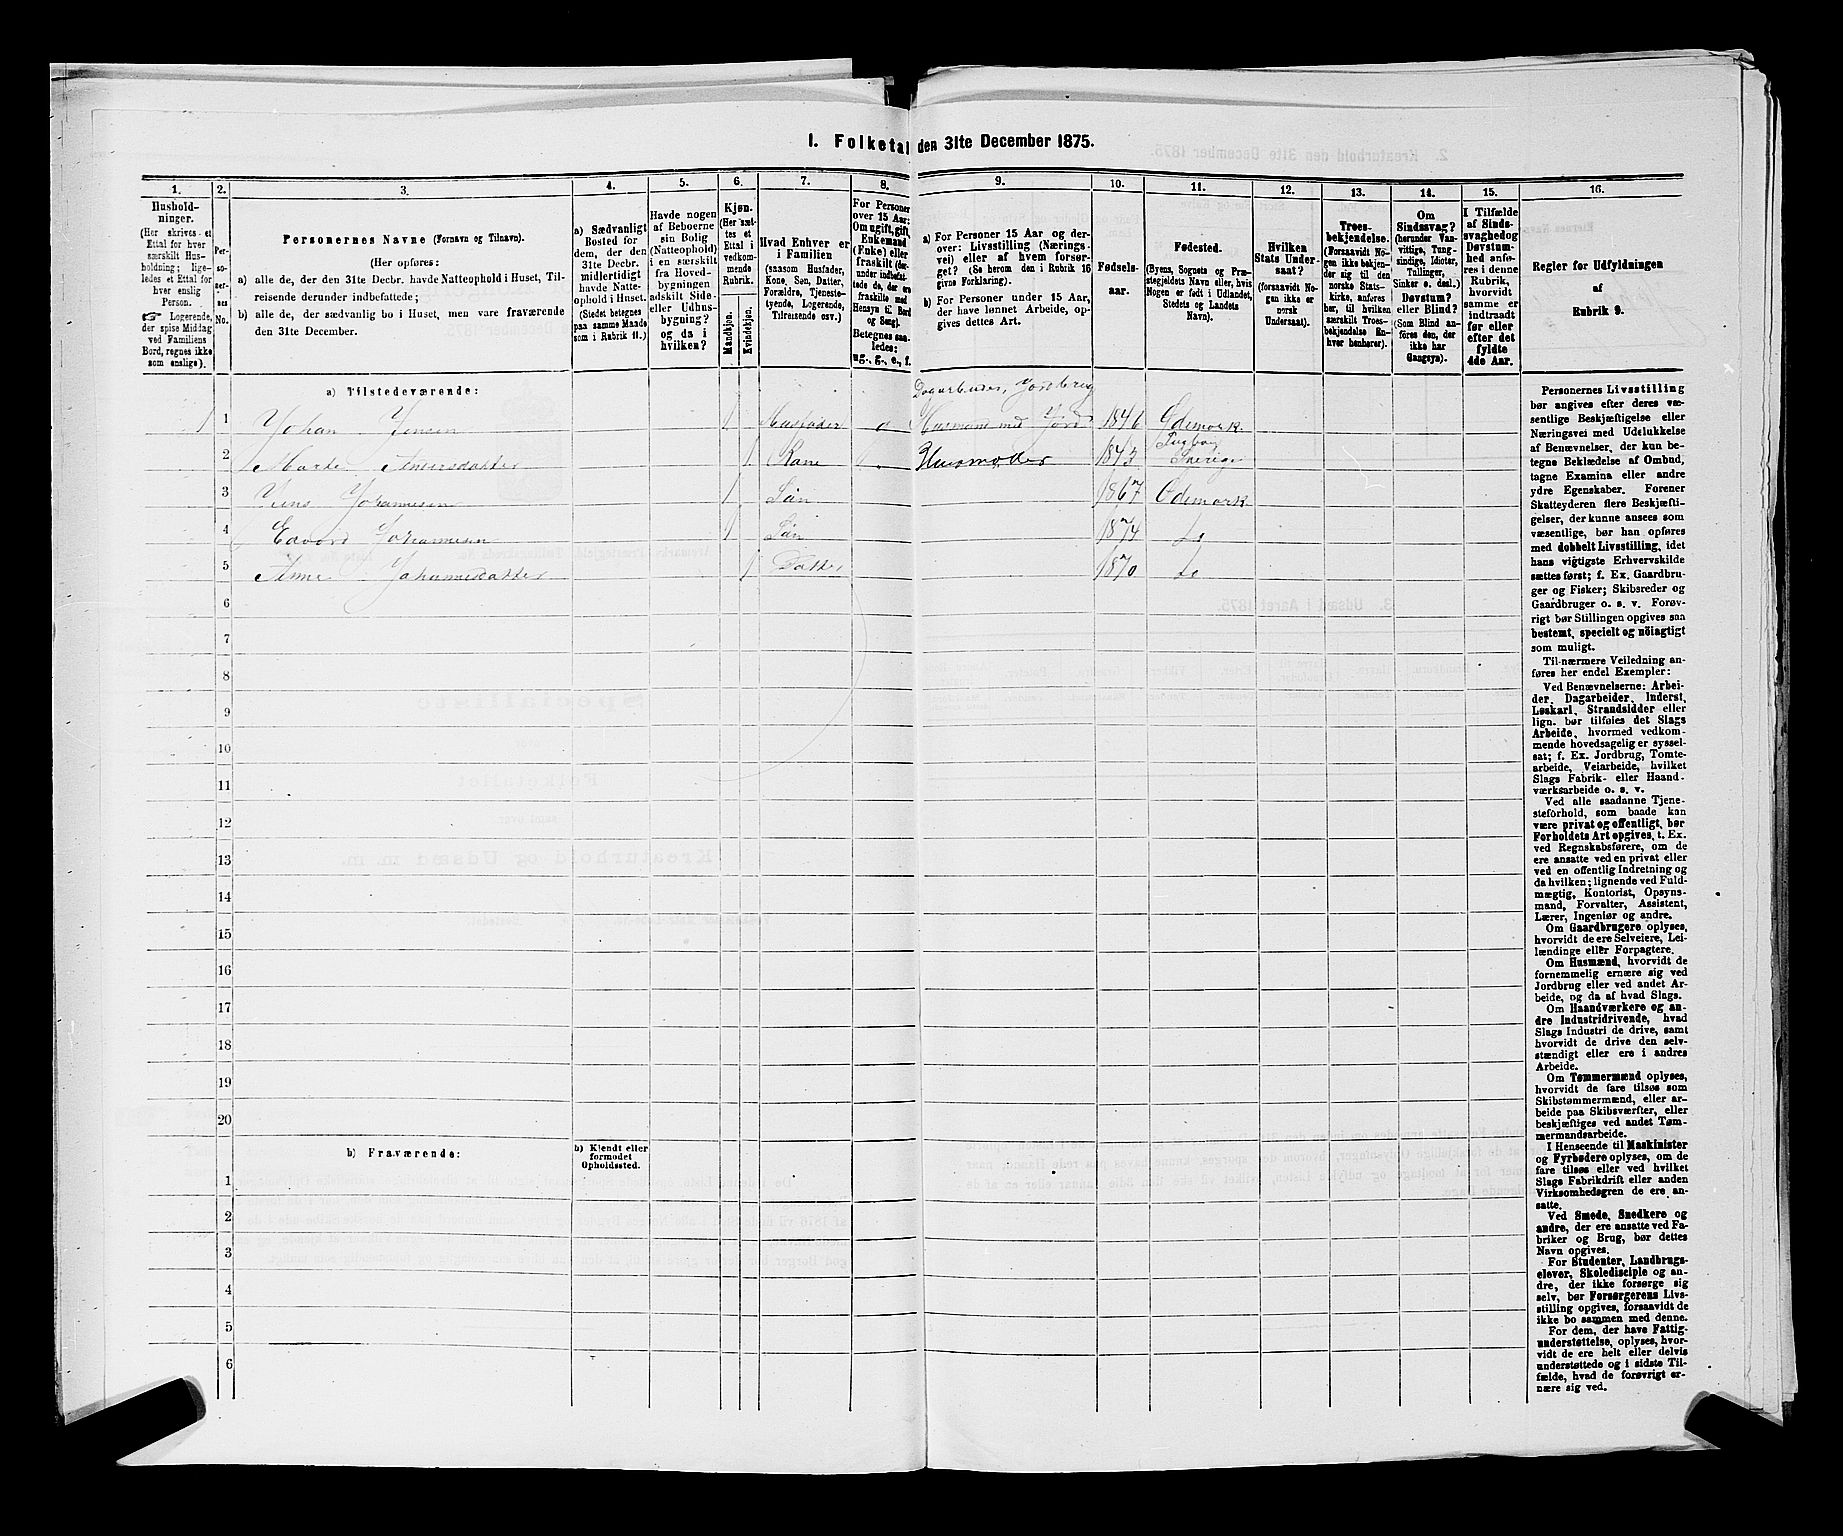 1. Folketal den 31te December 1875.
1.
Hushold-
ninger.
(Her skrives et
Ettal for hver
særskilt Hus-
holdning; lige-
ledes et Ettal for
hver enslig
Person.
☞ Logerende,
der spise Middag
ved Familiens
Bord, regnes ikke
som enslige).
2.
Per-
so-
ner-
nes
No.
3.
Personernes Navne (Fornavn og Tilnavn).
(Her opføres:
a) alle de, der den 31te Decbr. havde Natteophold i Huset, Til-
reisende derunder indbefattede;
b) alle de, der sædvanlig bo i Huset, men vare fraværende
den 31te December.
4.
a) Sædvanligt
Bosted for
dem, der den
31te Decbr.
midlertidigt
havde Natte-
ophold i Huset.
(Stedet betegnes
paa samme Maade
som i Rubrik 11.)
5.
Havde nogen
af Beboerne
sin Bolig
(Natteophold)
i en særskilt
fra Hoved-
bygningen
adskilt Side-
eller Udhus-
bygning?
og da i
hvilken?
6.
Kjøn.
(Her sæt-
tes et
Ettal i
vedkom-
mende
Rubrik.
Mandkjøn.
Kvindekjøn.
7.
Hvad Enhver er
i Familien
(saasom Husfader,
Kone, Søn, Datter,
Forældre, Tjeneste-
tyende, Logerende,
Tilreisende osv.)
8.
For Personer
over 15 Aar:
Om ugift, gift,
Enkemand
(Enke) eller
fraskilt (der-
under indbefat-
tede de, der ere
fraskilte med
Hensyn til Bord
og Seng).
Betegnes saa-
ledes:
ug., g., e., f.
9.
a) For Personer 15 Aar og der-
over: Livsstilling (Nærings-
vei) eller af hvem forsør-
get? (Se herom den i Rubrik 16
givne Forklaring).
b) For Personer under 15 Aar,
der have lønnet Arbeide, op-
gives dettes Art.
10.
Fødsels-
aar.
11.
Fødested.
(Byens, Sognets og Præ-
stegjeldets Navn eller, hvis
Nogen er født i Udlandet,
Stedets og Landets
Navn).
12.
Hvilken
Stats Under-
saat?
(forsaavidt No-
gen ikke er
norsk
Undersaat).
13.
Troes-
bekjendelse.
(Forsaavidt No-
gen ikke bekjen-
der sig til den
norske Stats-
kirke, anføres
her, til hvilken
særskilt Troes-
bekjendelse En-
hver henhører).
14.
Om
Sindssvag?
(herunder Van-
vittige, Tung-
sindige, Idioter,
Tullinger,
Sinker o. desl.)
Døvstum?
eller Blind?
(Som Blind an-
føres den, der
ikke har
Gangsyn).
15.
I Tilfælde
af Sinds-
svaghed og
Døvstum-
hed anfø-
res i denne
Rubrik,
hvorvidt
samme er
indtraadt
før eller
efter det
fyldte
4de Aar.
16.
Regler for Udfyldningen
af
Rubrik 9.
a) Tilstedeværende:
Dagarbeider, Jordbrug
1 1 Johan Jensen 1 Husfader g Husmand med Jord 1846 Ødemark
2 Marte Andersdatter 1 Kone " Husmoder 1843 Sverige
3 Jens Johannesen 1 Søn 1867 Ødemark
4 Edvard Johannesen 1 Søn 1874 Do
5 Anne Johannesdatter 1 Datter 1870 Do
6
7
8
9
10
11
12
13
14
15
16
17
18
19
20
b) Fraværende:
b) Kjendt eller
formodet
Opholdssted.
1
2
3
4
5
6
Personernes Livsstilling
bør angives efter deres væ-
sentlige Beskjæftigelse eller
Næringsvei med Udelukkelse
af Benævnelser, der kun be-
tegne Beklædelse af Ombud,
tagne Examina eller andre
ydre Egenskaber. Forener
Skatteyderen flere Beskjæfti-
gelser, der kunne ansees som
væsentlige, bør han opføres
med dobbelt Livsstilling, idet
hans vigtigste Erhvervskilde
sættes først; f. Ex. Gaardbru-
ger og Fisker; Skibsreder og
Gaardbruger o. s. v. Forøv-
rigt bør Stillingen opgives saa
bestemt, specielt og nöiagtigt
som muligt.
Til nærmere Veiledning an-
føres her endel Exempler:
Ved Benævnelserne: Arbei-
der, Dagarbeider, Inderst,
Løskarl, Strandsidder eller
lign. bør tilføies det Slags
Arbeide, hvormed vedkom-
mende hovedsagelig er syssel-
sat; f. Ex. Jordbrug, Tomte-
arbeide, Veiarbeide, hvilket
Slags Fabrik- eller Haand-
værksarbeide o. s. v.
Ved alle saadanne Tjene-
steforhold, som baade kan
være privat og offentligt, bør
Forholdets Art opgives, t. Ex.
ved Regnskabsførere, om de
ere ansatte ved en privat eller
ved en offentlig Indretning og
da hvilken; lignende ved Fuld-
mægtig, Kontorist, Opsyns-
mand, Forvalter, Assistent,
Lærer, Ingeniør og andre.
Om Gaardbrugere oplyses,
hvorvidt de ere Selveiere, Lei-
lændinge eller Forpagtere.
Om Husmænd, hvorvidt de
fornemmelig ernære sig ved
Jordbrug eller ved andet Ar-
beide, og da af hvad Slags.
Om Haandværkere og an-
dre Industridrivende, hvad
Slags Industri de drive, samt
hvorvidt de drive den selv-
stændigt eller ere i andres
Arbeide.
Om Tømmermænd oplyses,
hvorvidt de fare tilsøs som
Skibstømmermænd, eller ar-
beide paa Skibsværfter, eller
beskjæftiges ved andet Tøm-
mermandsarbeide.
I Henseende til Maskinister
og Fyrbødere oplyses, om de
fare tilsøs eller ved hvilket
Slags Fabrikdrift eller anden
Virksomhedsgren de ere an-
satte.
Ved Smede, Snedkere og
andre, der ere ansatte ved Fa-
briker og Brug, bør dettes
Navn opgives.
For Studenter, Landbrugs-
elever, Skoledisciple og an-
dre, der ikke forsørge sig
selv, bør Forsørgerens Livs-
stilling opgives, forsaavidt de
ikke bo sammen med denne.
For dem, der have Fattig-
understøttelse, oplyses, hvor-
vidt de ere helt eller delvis
understøttede og i sidste Til-
fælde, hvad de forøvrigt er-
nære sig ved.